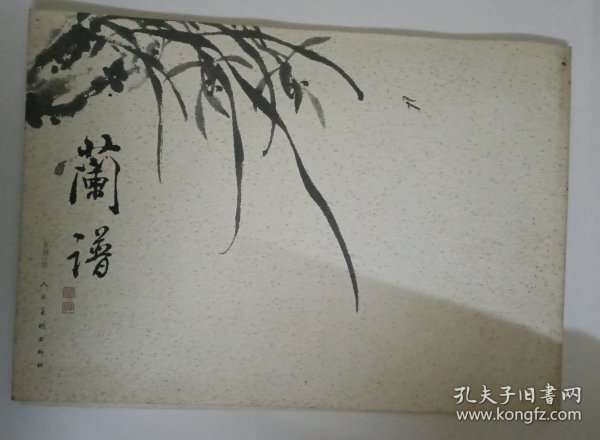 蘭谱
人民美術出版社
孔夫子旧書网
www.kongfz.com